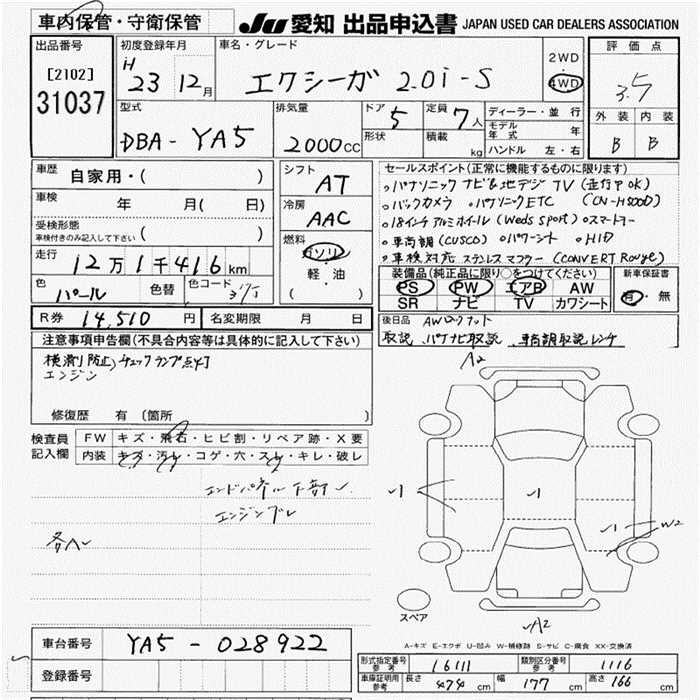 車内保管・守衛保管
JU 愛知 出品申込書 JAPAN USED CAR DEALERS ASSOCIATION
出品番号
[2102]
31037
初度登録年月
H 23 12月
車名・グレード
エクシーガ 2.0i-S
2WD
4WD
評価点
3.5
外装 内装
B B
型式
DBA-YA5
排気量
2000cc
ドア 5
形状
定員 7人
積載 kg
ディーラー・並行
モデル年式 年
ハンドル 左・右
車歴 自家用・( )
車検 年 月( 日)
受検形態
車検付きのみ記入して下さい ( )
走行
12万1千416km
色 パール
色替
色コード
シフト
AT
冷房
AAC
燃料
ガソリン
軽・油
( )
セールスポイント(正常に機能するものに限ります)
。パナソニック ナビ&地デジ TV (走行中OK)
。バックカメラ 。パナソニックETC (CN-H500D)
。18インチ アルミホイール(Weds Sport) 。スマートキー
。車高調(CUSCO) 。パワーシート 。HID
。車検対応 ステンレスマフラー(CONVERT Rouge)
装備品(純正品に限り○をつけてください)
PS PW エアB AW
SR ナビ TV カワシート
新車保証書
有・無
R券 14,510円 名変期限 月 日
後日品 AWロックナット
取説、パナナビ取説、車高調取説レンチ
注意事項申告欄(不具合内容等は具体的に記入して下さい)
横滑り防止)チェックランプ点灯
エンジン
修復歴 有(箇所 )
検査員
記入欄
FW キズ・飛石・ヒビ割・リペア跡・X要
内装 キズ・汚れ・コゲ・穴・スレ・キレ・破レ
エンドパネル下部
エンジンブレ
各ヘ
A2
1
1
1
W2
スペア
A2
A-キズ E-エクボ U-凹み W-補修跡 S-サビ C-腐食 XX-交換済
車台番号 YA5-028922
登録番号
形式指定番号 参考 16111
類別区分番号 参考 1116
車庫証明用 参考 長さ 474cm 幅 177cm 高さ 166cm